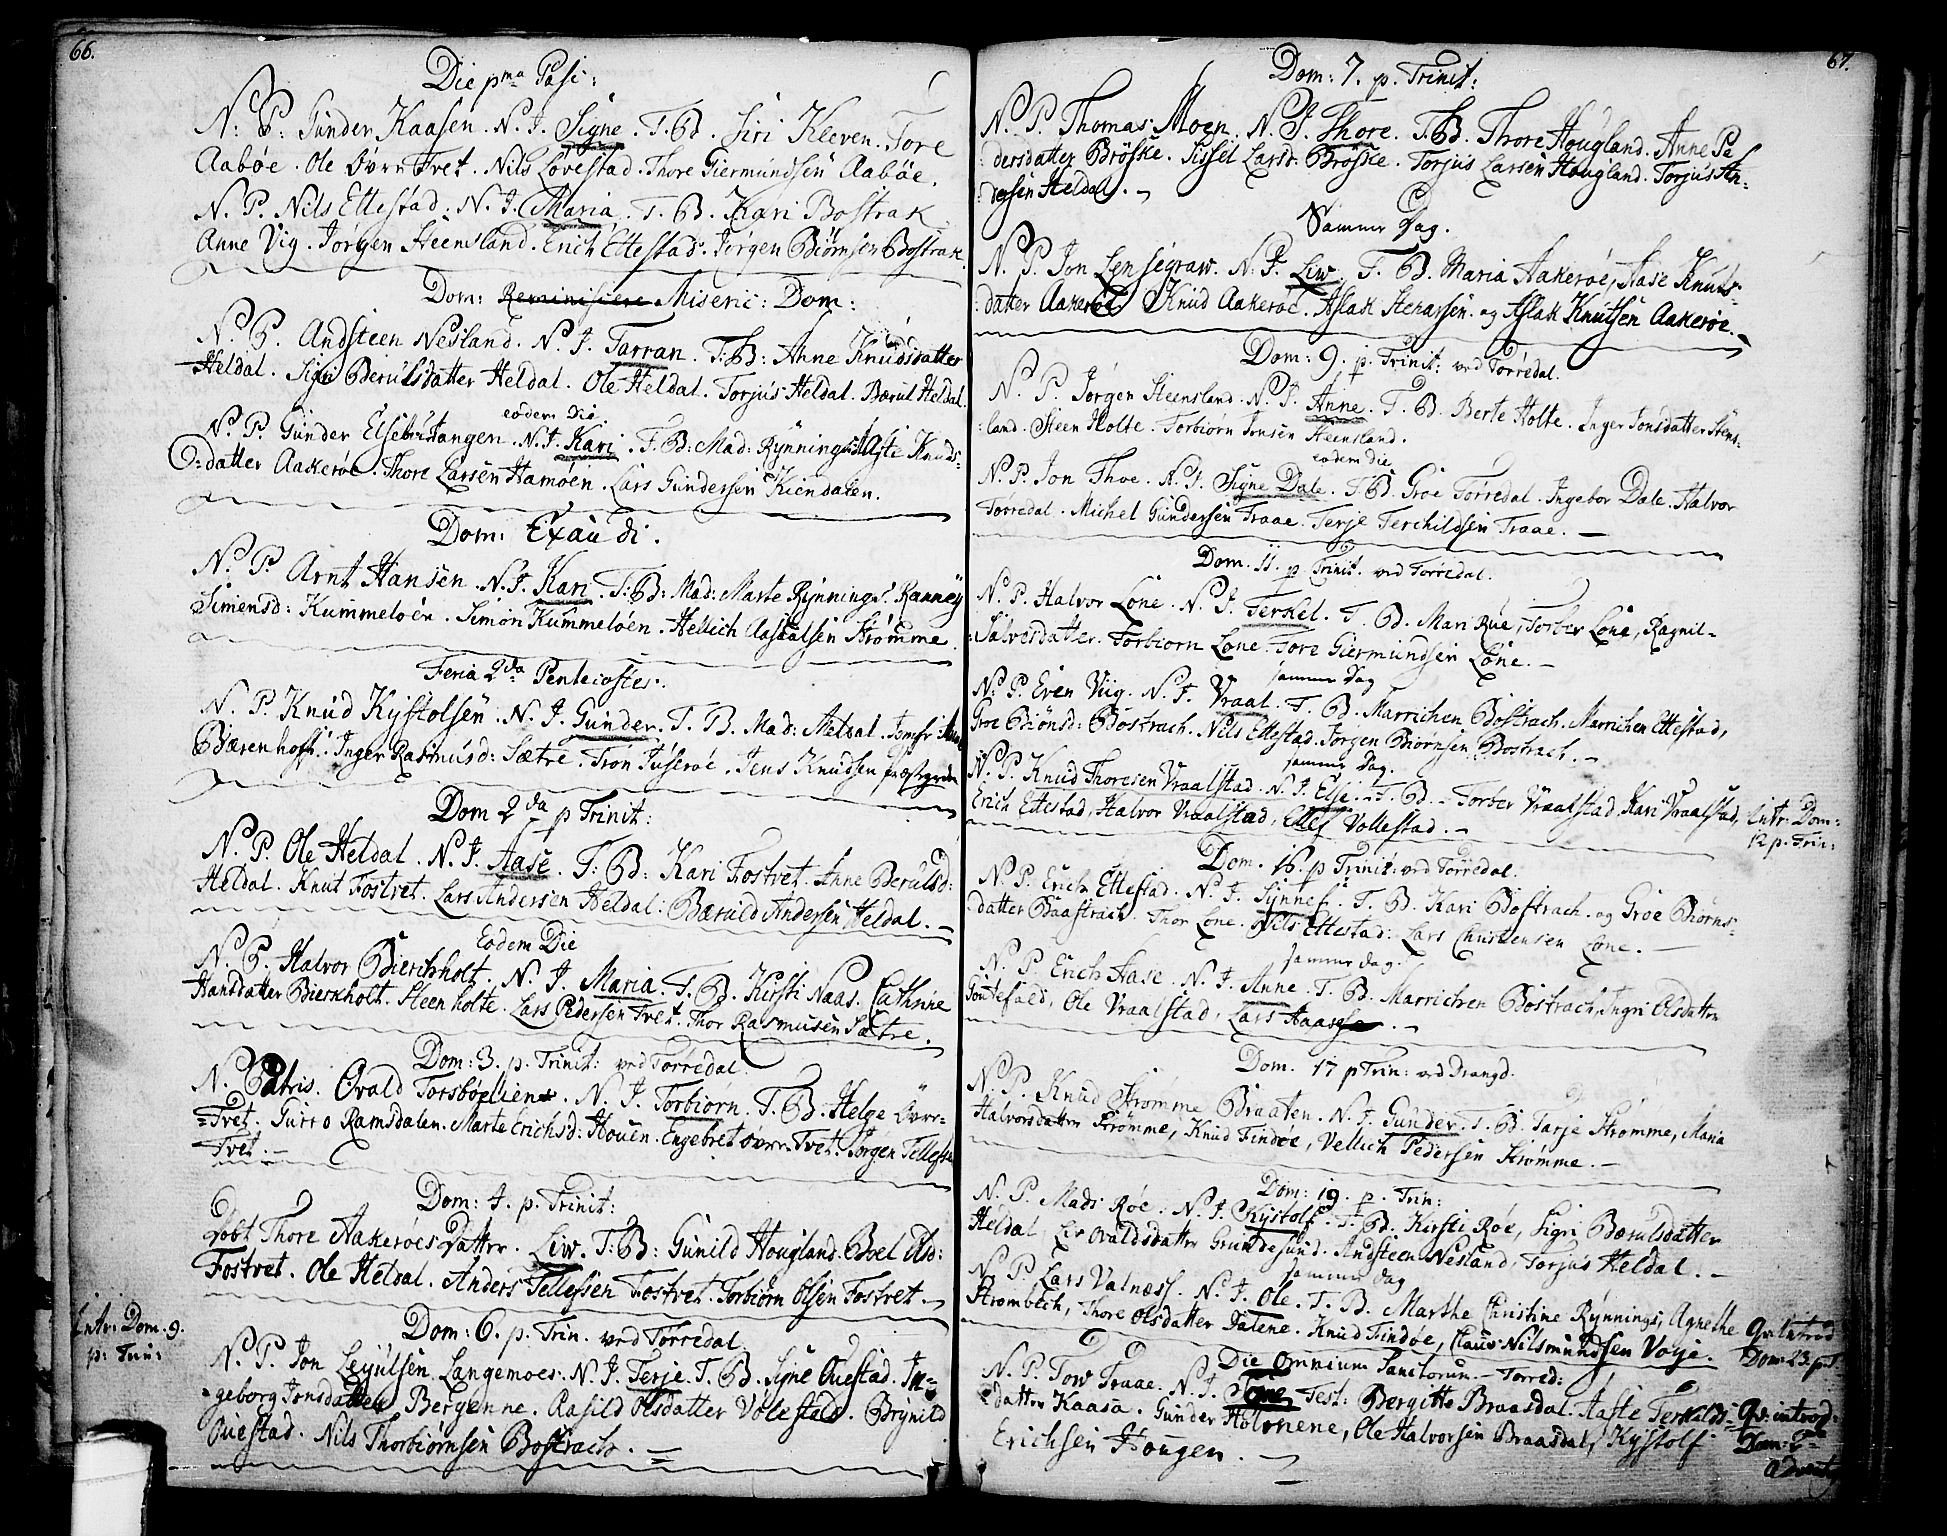 66.
Die pma Pasc:
N: P: Gunder Kaasen. N. I. Signe. T. B. Siri Kleven. Tore
Aabøe. Ole Øvre Tvet. Nils Løvestad. Thore Giermundsen Aabøe.
N. P. Nils Ettestad. N. I. Maria. T. B. Kari Bostrak
Anne Vig. Jørgen Steensland. Erich Ettestad. Jørgen Biørnsen Bostrak.
Dom: Reminiscere Miseric: Dom:
N. P. Andsteen Nesland. N. I. Tarran. T: B: Anne Knudsdatter
Heldal. Sigri Berulsdatter Heldal. Ole Heldal. Torjus Heldal. Bærul Heldal.
eodem Die
N. P. Gunder Tangen. N. I. Kari. T. B: Mad: Rynnings. Aste Knuds-
datter Aakerøe. Thore Larsen Hamoen. Lars Gundersen Kiendalen.
Dom: Exaudi.
N. P. Arnt Hansen. N. I. Kari. T: B: Mad: Marte Rynnings. Ranney
Simensd: Kummeloen. Simon Kummeloen. Hellich Aasulsen Strømme.
Feria 2da Pentecostes.
N. P. Knud Kystolsen. N. I. Gunder. T. B. Mad: Melsal. Jomfr:
Bærenhoff. Inger Rasmusd: Sætre. Tron Juserøe. Jens Knudsen
Dom 2da p Trinit:
N. P. Ole Heldal. N. I. Aase. T: B: Kari Fostvet. Anne Berulsd:
Heldal. Knut Fostvet. Lars Andersen Heldal: Bæruld Andersen Heldal.
Eodem Die
N. P. Halvor Bierchholt. N. I. Maria. T. B. Kirsti Naas. Cathrine
Hansdatter Bierkholt. Steen Holte. Lars Pedersen Tvet. Thor Rasmusen Sætre.
Dom: 3. p. Trinit: ved Torredal
N. Patris. Ovald Torsbøelien. N. I. Torbiorn. T. B. Helge Øvre-
Tvet. Gurro Ramsdalen. Marte Erichsd: Houen. Engebret øvre Tvet. Jørgen Tellefsen
Tvet.
Dom: 4. p. Trinit:
Døbt Thore Aakerøes Datter. Liw. T: B: Gunild Hougland. Boel Olsd:
Fostvet. Ole Heldal. Anders Tellefsen Fostvet. Torbiørn Olsen Fostvet.
Intr: Dom. 9.
p: Trin:
Dom: 6. p. Trin. ved Torredal
N. P. Jon Leyulsen Langemoes. N. I. Terje. T. B. Signe Ouestad. In-
geborg Jonsdatter Bergenne. Aasild Olsdatter Vølestad. Brynild
Ouestad. Nils Thorbiørnsen Bostrach.
67.
Dom: 7. p. Trinit:
N. P. Thomas Moen. N. I. Thore. T. B. Thore Hougland. Anne Pe
dersdatter Brøske. Sissel Larsd. Brøske. Torjus Larsen Hougland. Torjus An-
dersen Heldal.
Samme Dag.
N. P. Jon Lensegraw. N. I. Liw. T. B. Maria Aakerøe, Aase Knuds-
datter Aakerøe. Knud Aakerøe. Aslak Stenarsen. og Aslak Knutsen Aakerøe.
Dom: 9. p. Trinit: ved Torredal.
N. P. Jørgen Steensland. N. I. Anne. T. B. Berte Holte. Inger Jonsdatter Stens-
land. Steen Holte. Torbiorn Jonsen Steensland.
eodem die
N. P. Jon Thoe. N. I. Signe Dale. T. B. Groe Torredal. Ingebor Dale. Halvor
Torredal. Michel Gundersen Traae. Terje Terchildsen Traae.
Dom. 11. p Trinit. ved Torredal.
N. P. Halvor Lone. N. I. Terkel. T. B. Mari Rue, Torber Lone, Ragnil-
Salvesdatter. Torbiorn Lone. Tore Giermundsen Lone.
samme Dag
N. P. Even Viig. N. I. Vraal. T. B. Marrichen Bostrach. Marrichen Ettestad,
Groe Biónsd: Bostrach. Nils Ettestad. Jorgen Biornsen Bostrach.
samme Dag.
N. P. Knud Thoresen Vraalstad. N. I. Else. T. B. Torber Vraalstad, Kari Vraalstad,
Erich Ettestad, Halvor Vraalstad, Ellef Vollestad.
Intr: Dom:
12 p. Trin:
Dom. 16. p Trinit: ved Torredal.
N. P. Erich Ettestad. N. I. Synnef. T. B. Kari Bostrach. og Groe Biorns-
datter Baastrach. Thor Lone. Nils Ettestad. Lars Christensen Lone.
samme dag.
N. P. Erich Aase. N. I. Anne. T. B. Marrichen Bostrach, Ingri Olsdatter
Gondefald, Ole Vraalstad, Lars
Dom. 17 p Trin: ved Drangd.
N. P. Knud Strømme Braaten. N. I. Gunder. T. B. Tarje Stromme, Maria
Halvorsdatter Strømme, Knud Findøe, Vellich Pedersen Stromme.
Dom: 19. p. Trin:
N. P. Mads Røe. N. I. Kystolf. T. B. Kirsti Røe, Sigri Bærulsdatter
Heldal, Liv Ovaldsdatter Grundesund. Andsteen Nesland, Torjus Heldal.
samme dag
N. P. Lars Valness. N. I. Ole. T. B. Marthe Christine Rynnings, Agnethe
Strombech, Thore Olsdatter Dalene. Knud Findøe, Claus Nilsmundsen Voje.
Qv: introd
Dom: 23. p. T.
Die Omnium Sanctorum. Torred:
N. P. Tow Traae. N. I. Tone. Test: Bergitte Braasdal. Aaste Terkilds-
datter Kaasa. Gunder Holonene, Ole Halvorsen Braasdal, Kystolf
Erichsen Hougen.
Qv: introd:
Dom: 2
Advent